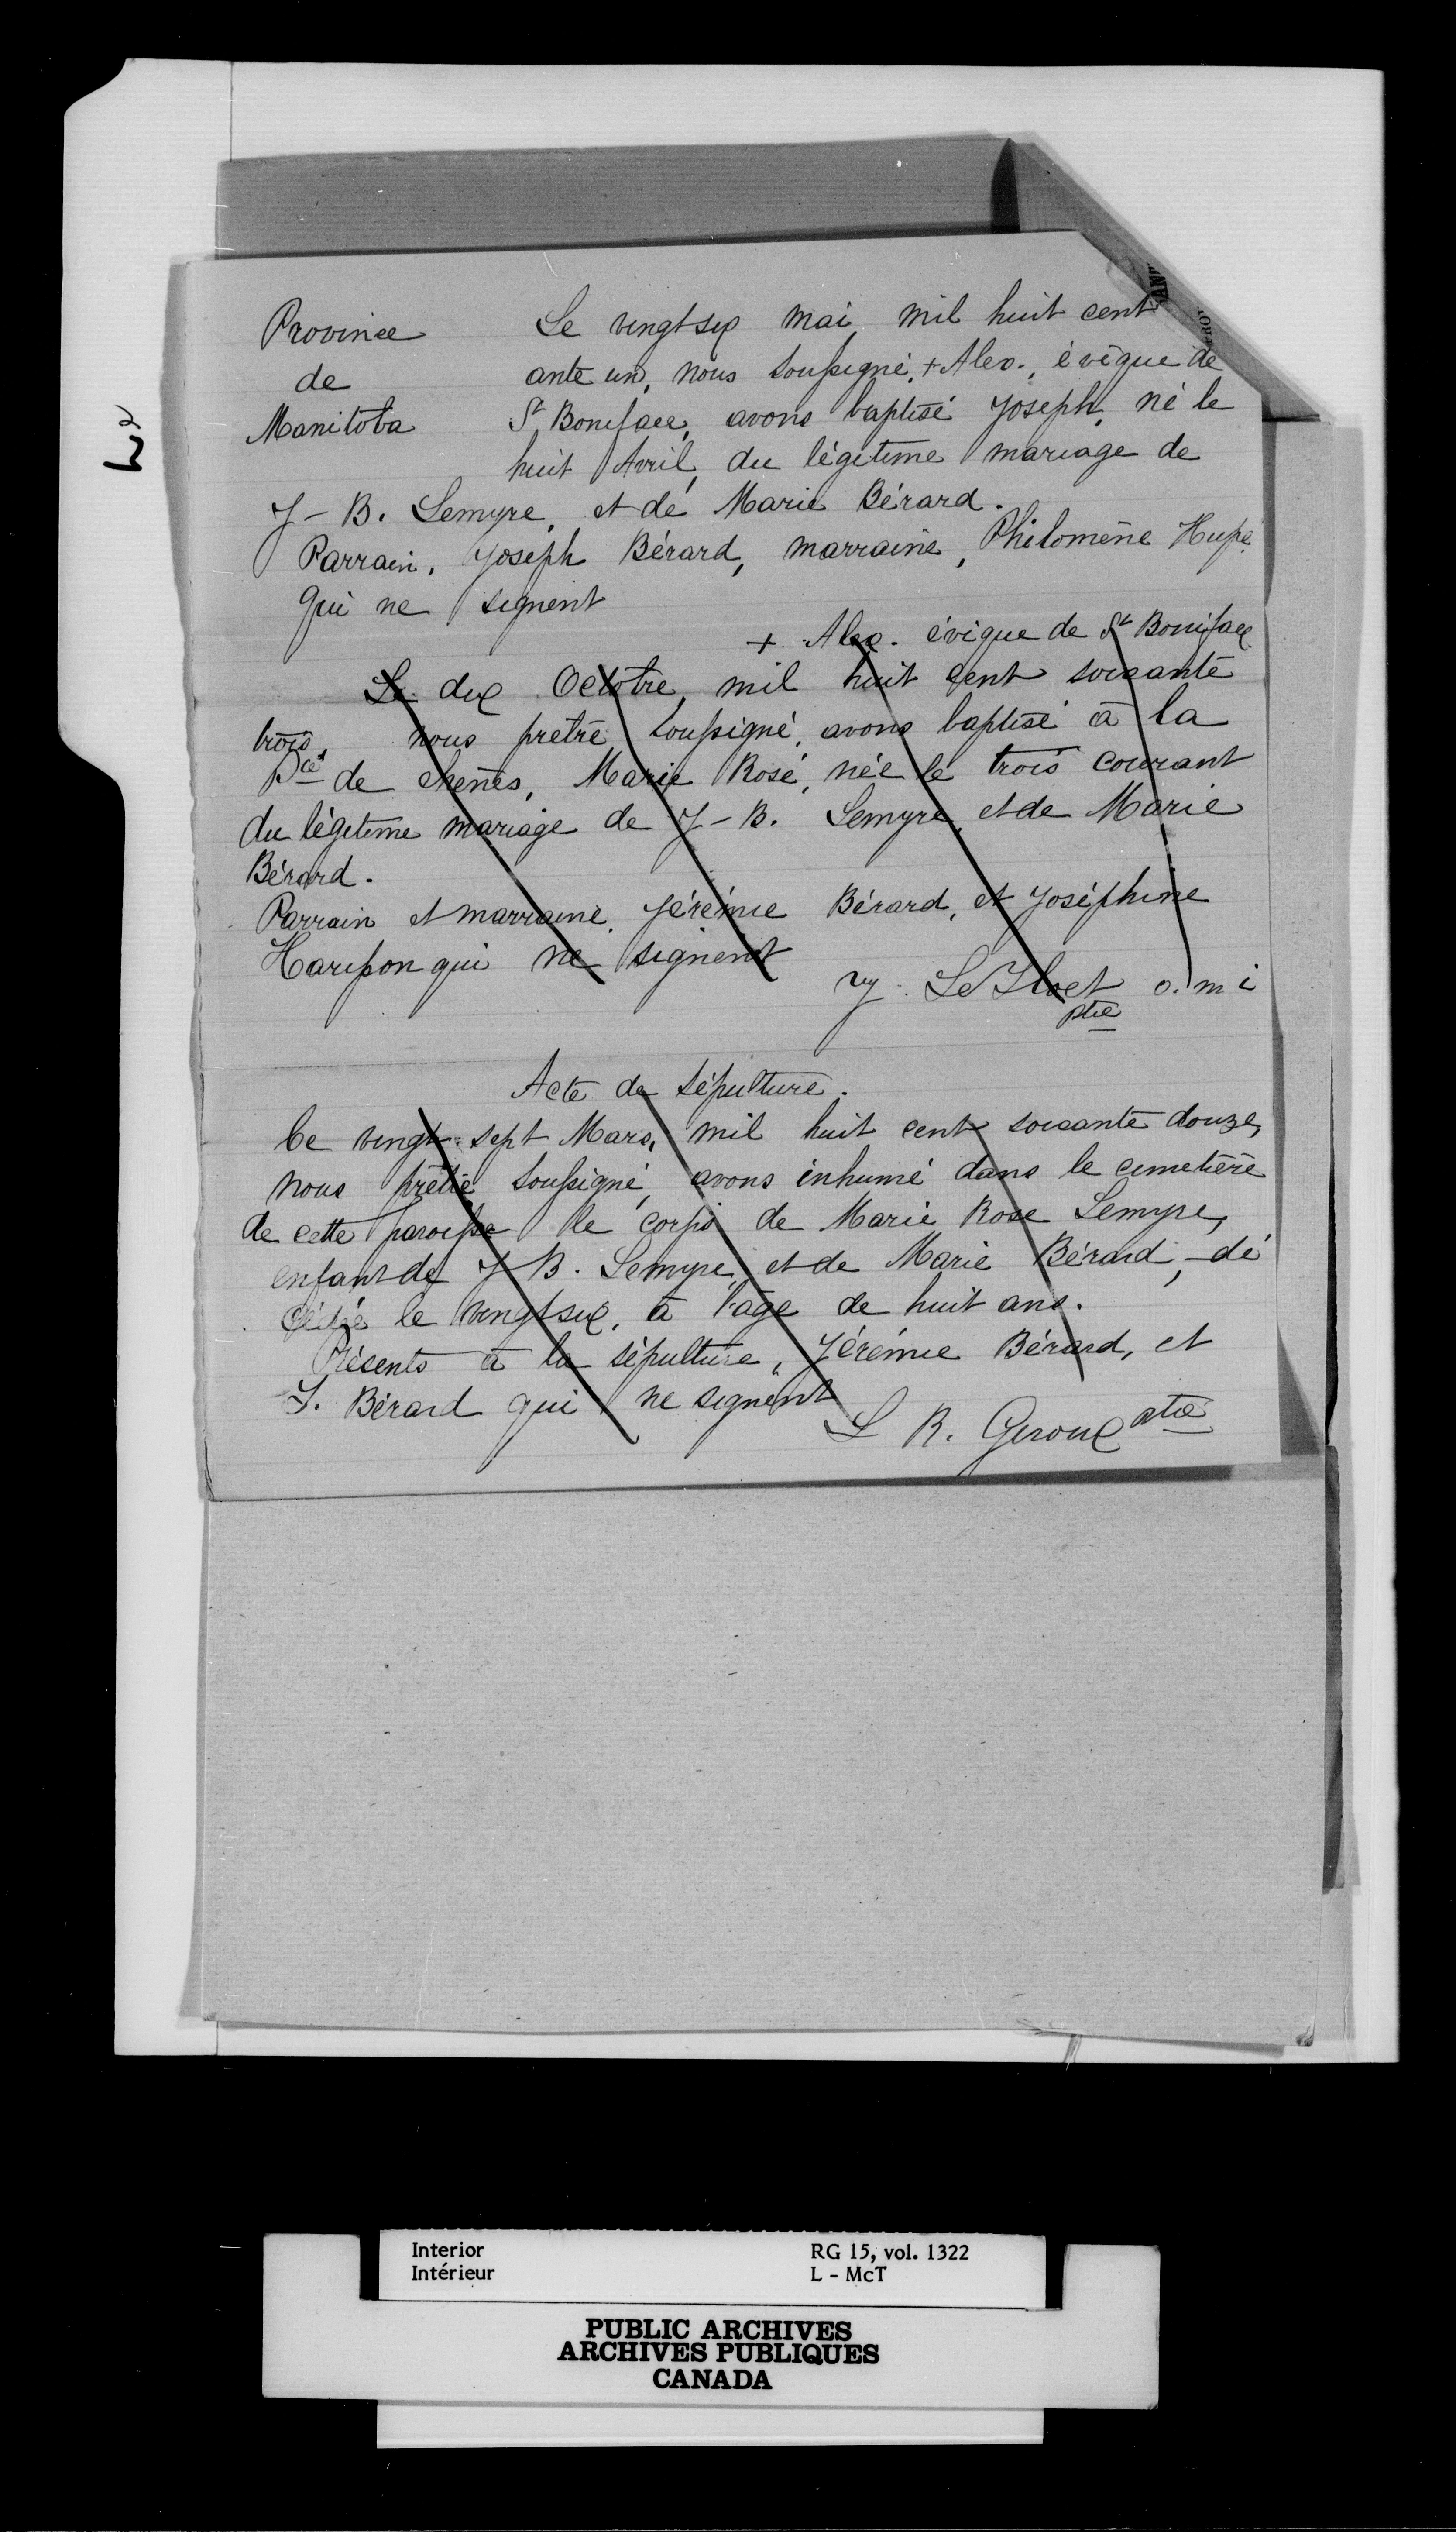 Province
de
Manitoba
Le vingt six mai, mil huit cent
ante un, nous soussigné, + Alex., évêque de
St Boniface, avons baptisé Joseph, né le
huit Avril, du légitime mariage de
J-B. Lemyre, et de Marie Bérard.
Parrain, Joseph Bérard, marraine, Philomène Hupé
qui ne signent
+ Alex. évique de St Boniface
Le dix Octobre, mil huit cent soixante
trois, nous prêtre soussigné, avons baptisé à la
Pce de chenes, Marie Rose, née le trois courant
du légitime mariage de J-B. Lemyre, et de Marie
Bérard.
Parrain et marraine, Jérémie Bérard, et Joséphine
Harisson qui ne signent
Le o. m i
ptre
Acte de sépulture.
Ce vingt-sept Mars, mil huit cent soixante douze,
nous prêtre soussigné, avons inhumé dans le cimetière
de cette paroisse le corps de Marie Rose Lemyre,
enfant de J B. Lemyre, et de Marie Bérard, dé
cédée le vingt six, à l'âge de huit ans.
Présents à la sépulture, Jérémie Bérard, et
L. Bérard qui ne signent
L R. Giroux ptre
Interior
Intérieur
RG 15, vol. 1322
L - McT
PUBLIC ARCHIVES
ARCHIVES PUBLIQUES
CANADA